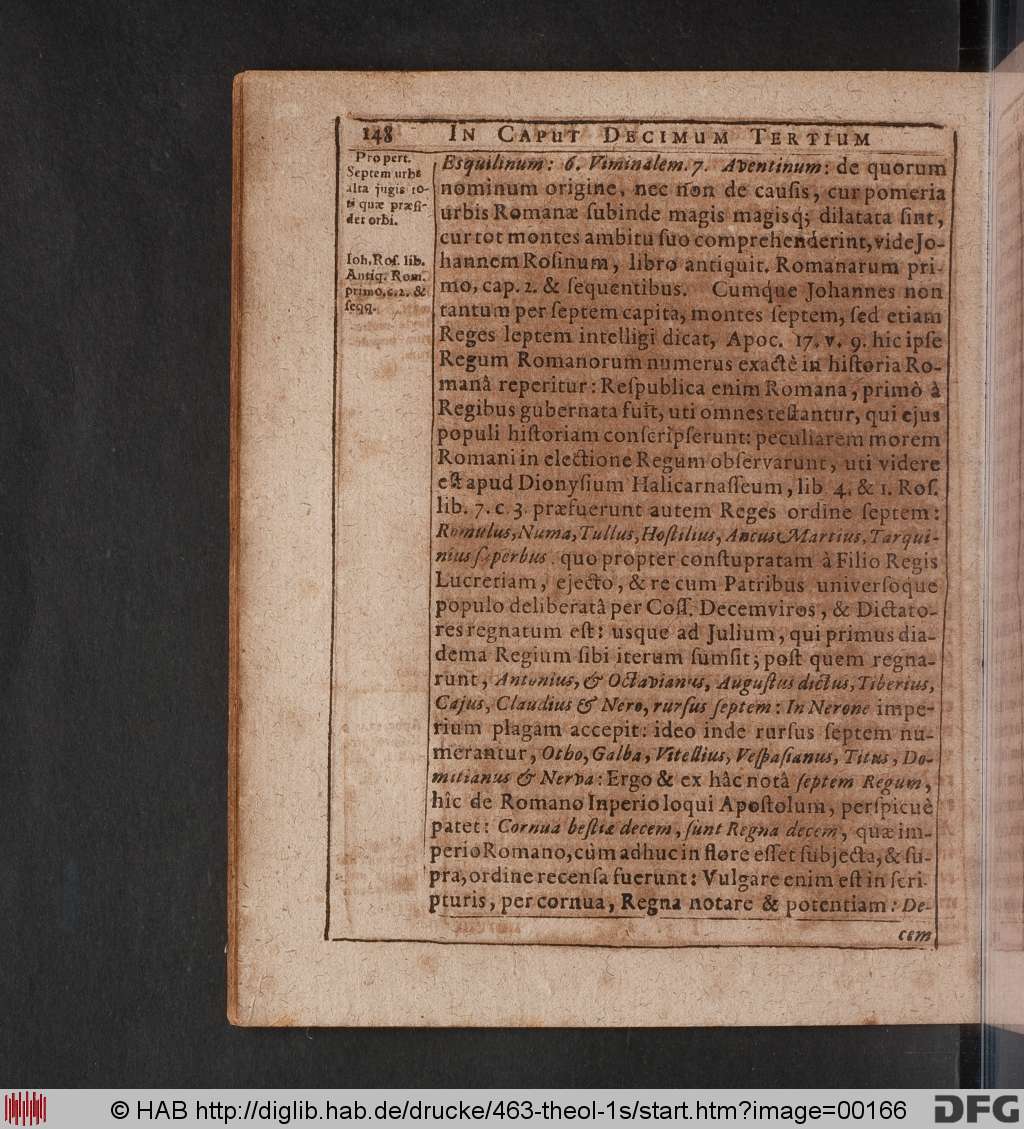 148 IN CAPUT DECIMUM TERTIUM
Propert.
Septem urbs
alta jugis to-
ti quæ præsi-
det orbi.
Ioh. Ros. lib.
Antiq. Rom.
primo, c. 2. &
seqq.
Esquilinum: 6. Viminalem. 7. Aventinum: de quorum
nominum origine, nec non de causis, cur pomeria
urbis Romanæ subinde magis magisq; dilatata sint,
cur tot montes ambitu suo comprehenderint, vide Jo-
hannem Rosinum, libro antiquit. Romanarum pri-
mo, cap. 2. & sequentibus. Cumque Johannes non
tantum per septem capita, montes septem, sed etiam
Reges leptem intelligi dicat, Apoc. 17. v. 9. hic ipse
Regum Romanorum numerus exactè in historia Ro-
manâ reperitur: Respublica enim Romana, primò à
Regibus gubernata fuit, uti omnes testantur, qui ejus
populi historiam conscripserunt: peculiarem morem
Romani in electione Regum observarunt, uti videre
est apud Dionysium Halicarnasseum, lib 4. & 1. Ros.
lib. 7. c. 3. præfuerunt autem Reges ordine septem:
Romulus, Numa, Tullus, Hostilius, Ancus Martius, Tarqui-
nius superbus. quo propter constupratam à Filio Regis
Lucretiam, ejecto, & re cum Patribus universoque
populo deliberatâ per Coss. Decemviros, & Dictato-
res regnatum est: usque ad Julium, qui primus dia-
dema Regium sibi iterum sumsit; post quem regna-
runt, Antonius, & Octavianus, Augustus dictus, Tiberius,
Cajus, Claudius & Nero, rursus septem: In Nerone impe-
rium plagam accepit: ideo inde rursus septem nu-
merantur, Otho, Galba, Vitellius, Vespasianus, Titus, Do-
mitianus & Nerva: Ergo & ex hâc notâ septem Regum,
hîc de Romano Inperio loqui Apostolum, perspicuè
patet: Cornua bestiæ decem, sunt Regna decem, quæ im-
perio Romano, cùm adhuc in flore esset subjecta, & su-
pra, ordine recensa fuerunt: Vulgare enim est in scri-
pturis, per cornua, Regna notare & potentiam: De-
cem
© HAB http://diglib.hab.de/drucke/463-theol-1s/start.htm?image=00166
DFG